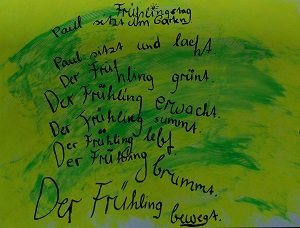 Frühlingstag
Paul sitzt im Garten
Paul sitzt und lacht
Der Frühling grünt.
Der Frühling erwacht.
Der Frühling summt.
Der Frühling lebt
Der Frühling brummt.
Der Frühling bewegt.